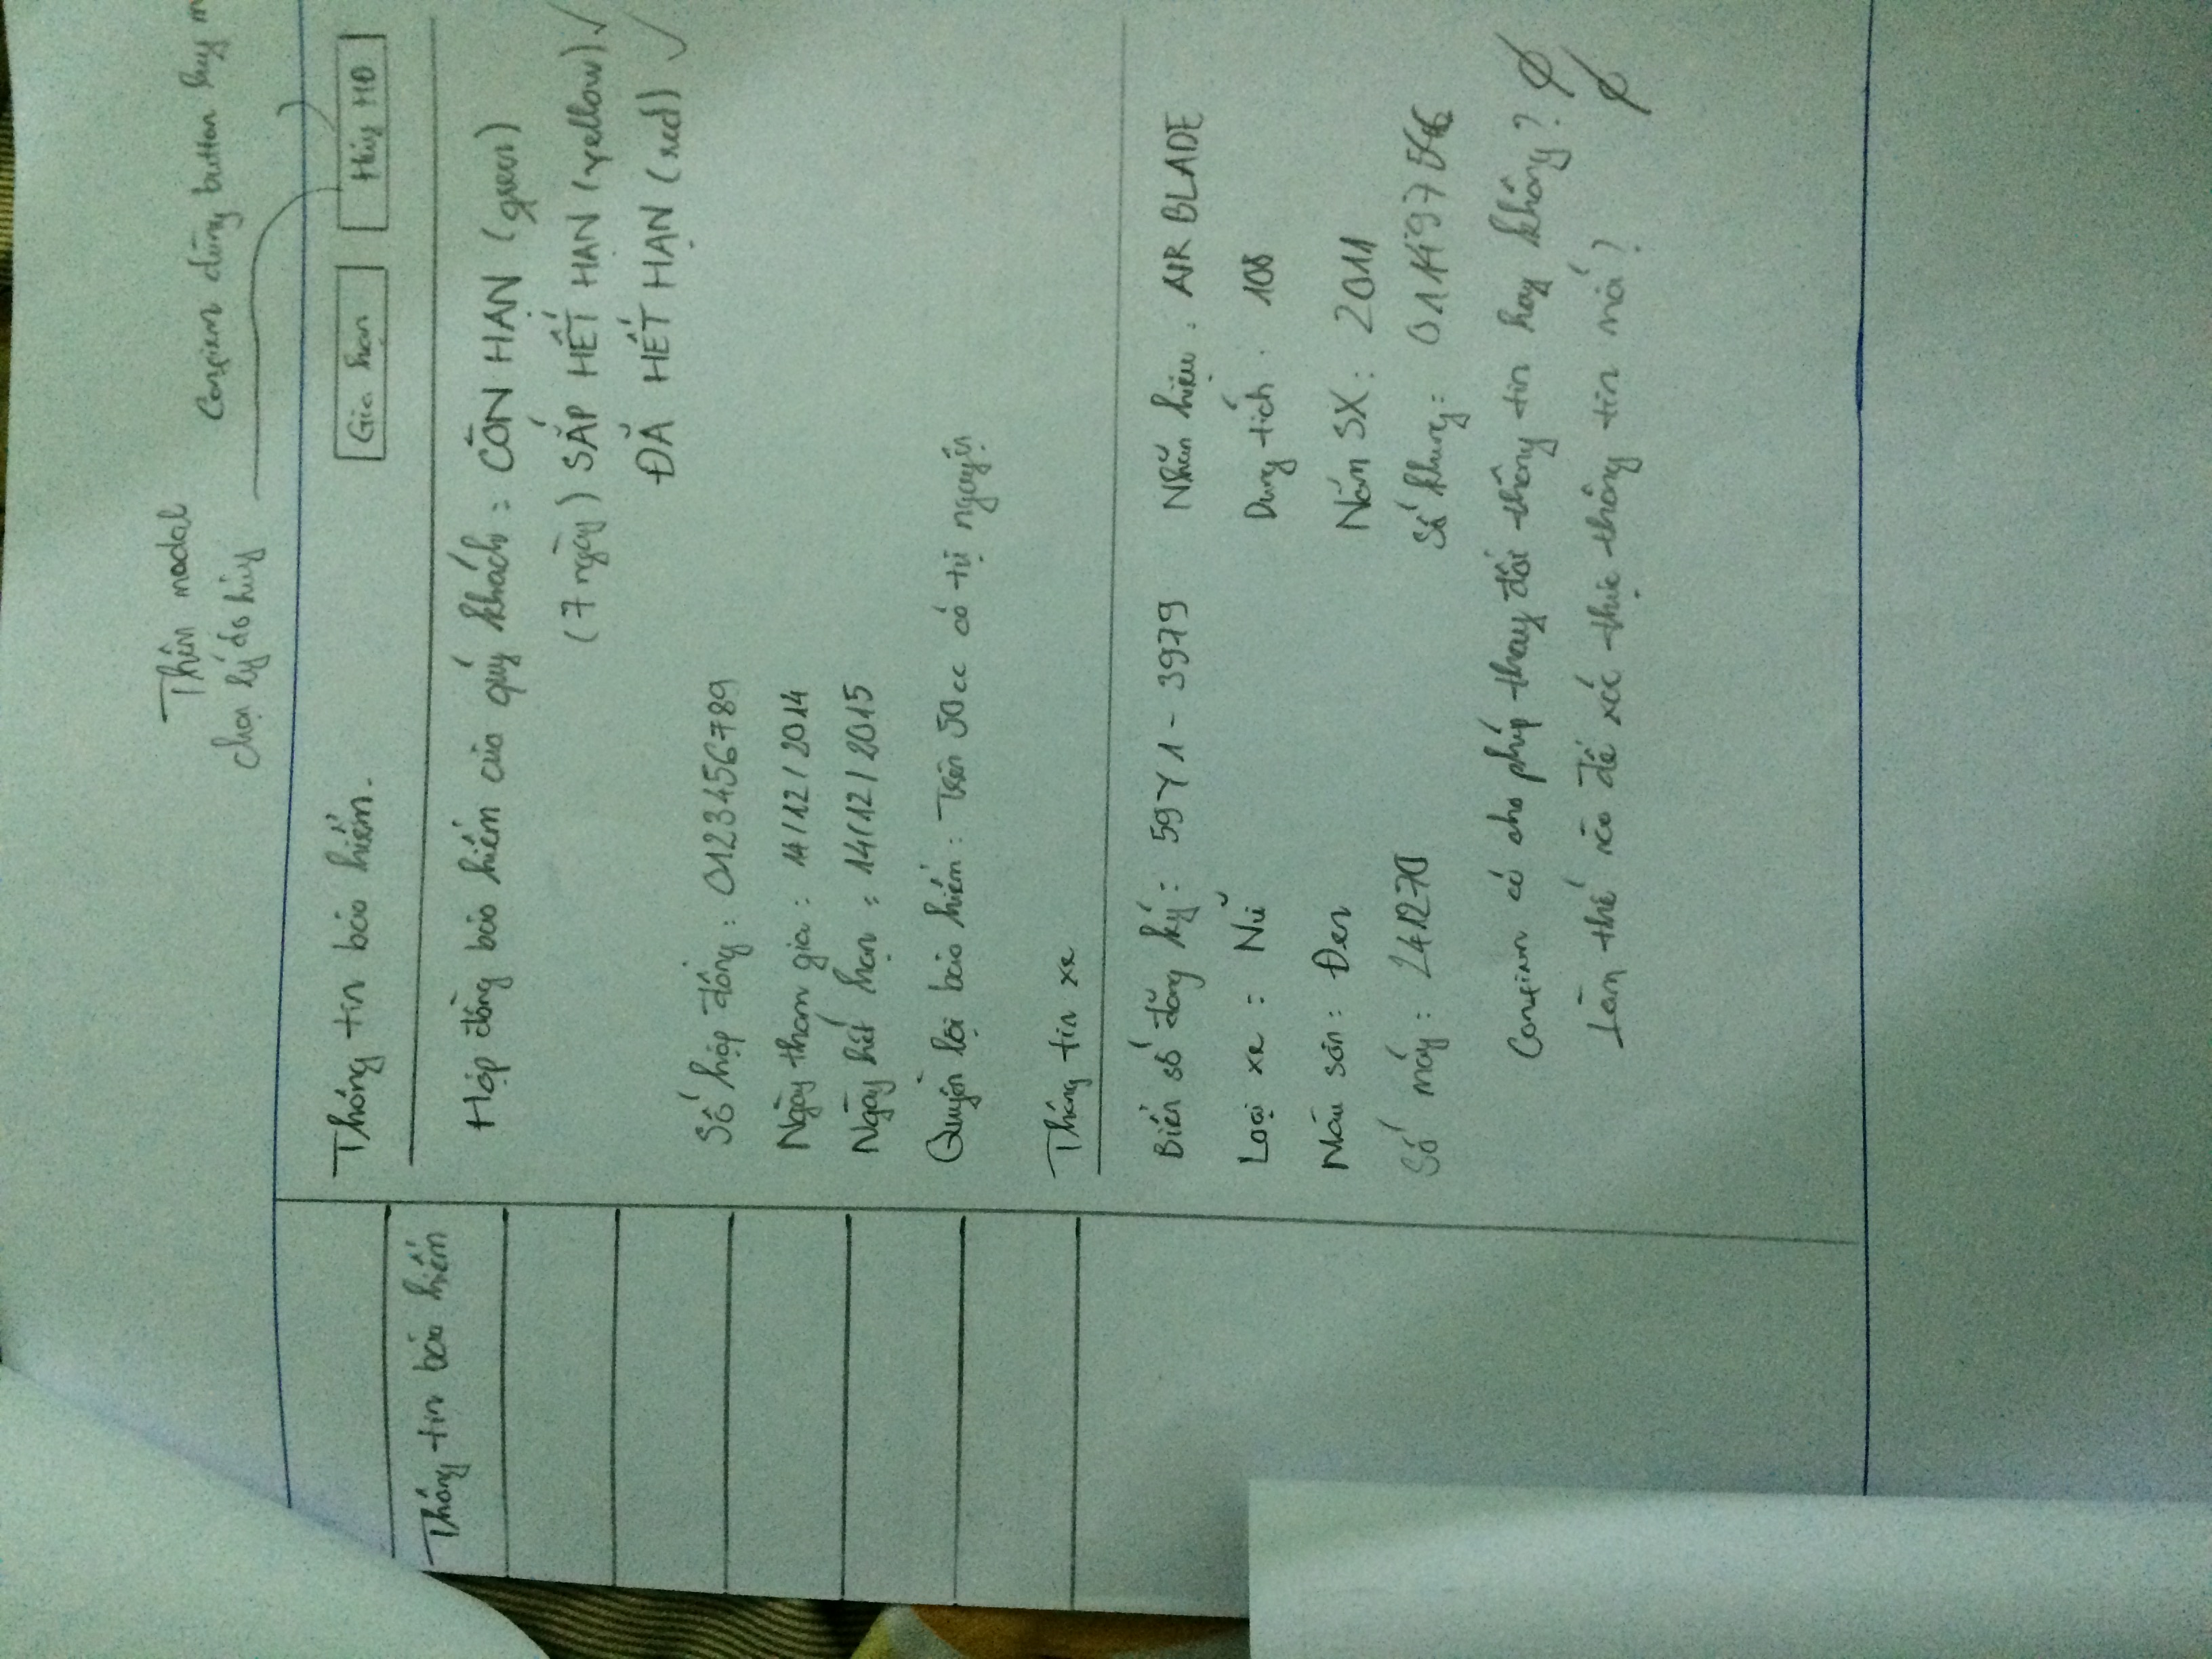 Thêm modal
chọn lý do hủy
Confirm dùng button hay
Thông tin bảo hiểm.
Gia hạn
Hủy HĐ
Thông tin bảo hiểm
Hợp đồng bảo hiểm của quý khách : CÒN HẠN (green)
(7 ngày) SẮP HẾT HẠN (yellow) ✓
ĐÃ HẾT HẠN (red) ✓
Số hợp đồng : 0123456789
Ngày tham gia : 14/12/2014
Ngày hết hạn : 14/12/2015
Quyền lợi bảo hiểm : Trên 50cc có tự nguyện
Thông tin xe
Biển số đăng ký : 59Y1 - 3979 Nhãn hiệu : AIR BLADE
Loại xe : Nữ Dung tích : 108
Màu sơn : Đen Năm SX : 2011
Số máy : 241270 Số khung :
Confirm có cho phép thay đổi thông tin hay không ?
Làm thế nào để xác thực thông tin mới ?